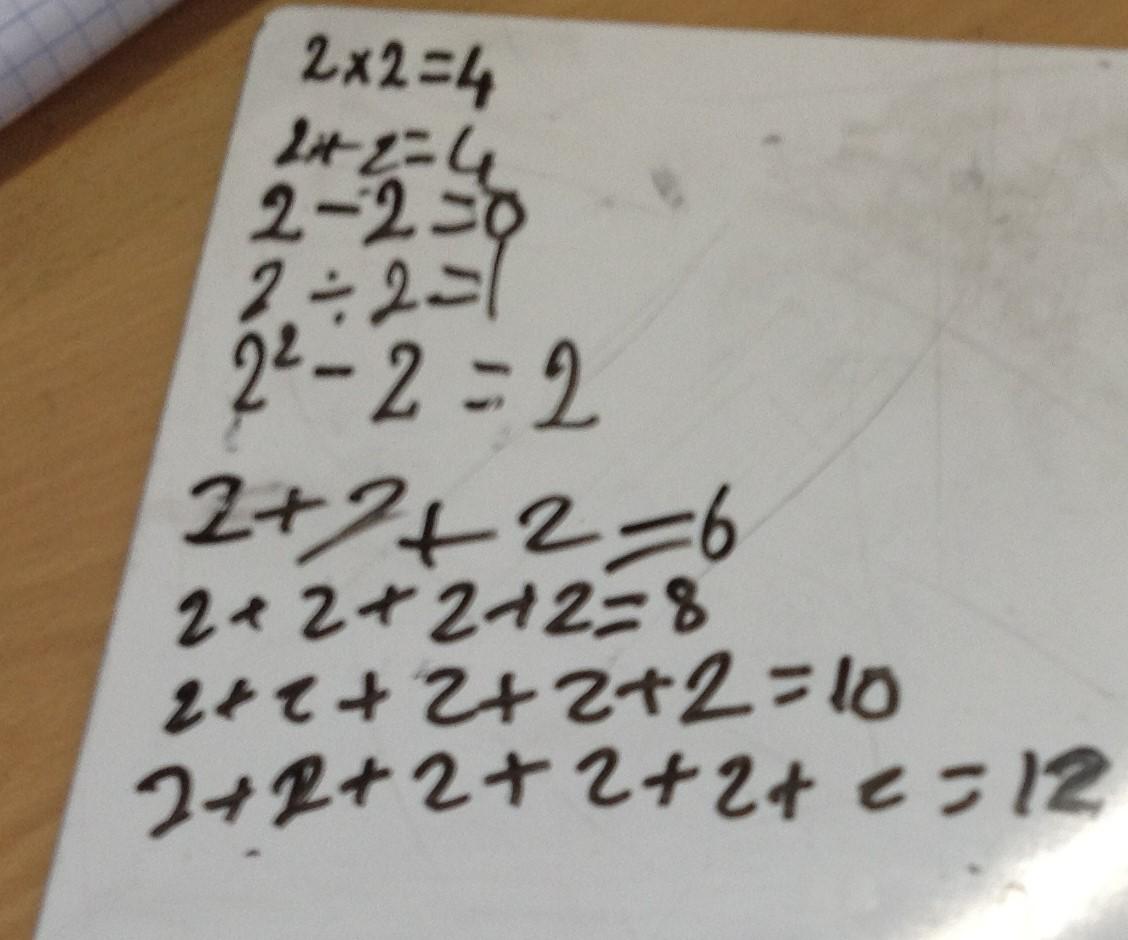 2×2=4
2+2=4
2-2=0
2÷2=1
2²-2=2
2+2+2=6
2+2+2+2=8
2+2+2+2+2=10
2+2+2+2+2+2=12